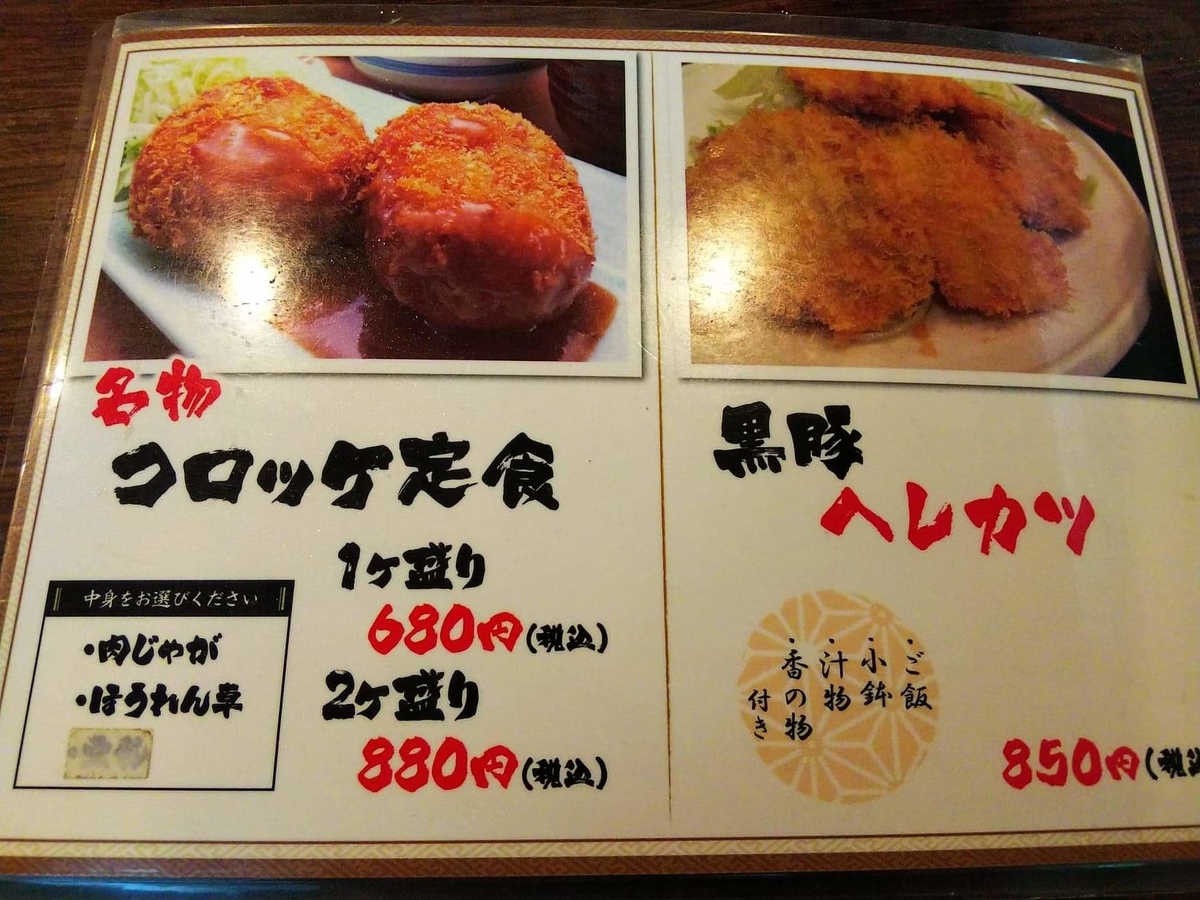 名物
コロッケ定食
1ヶ盛り
680円(税込)
2ヶ盛り
880円(税込)
中身をお選びください
・肉じゃが
・ほうれん草
黒豚
ヘレカツ
・ご飯
・小鉢
・汁物
・香の物
付き
850円(税込